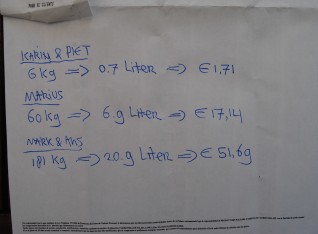 KARIM & PIET
6 kg => 0.7 LITER => € 1,71
MARIUS
60 kg => 6.9 LITER => € 17,14
MARK & 
181 kg => 20.9 LITER => € 51,69